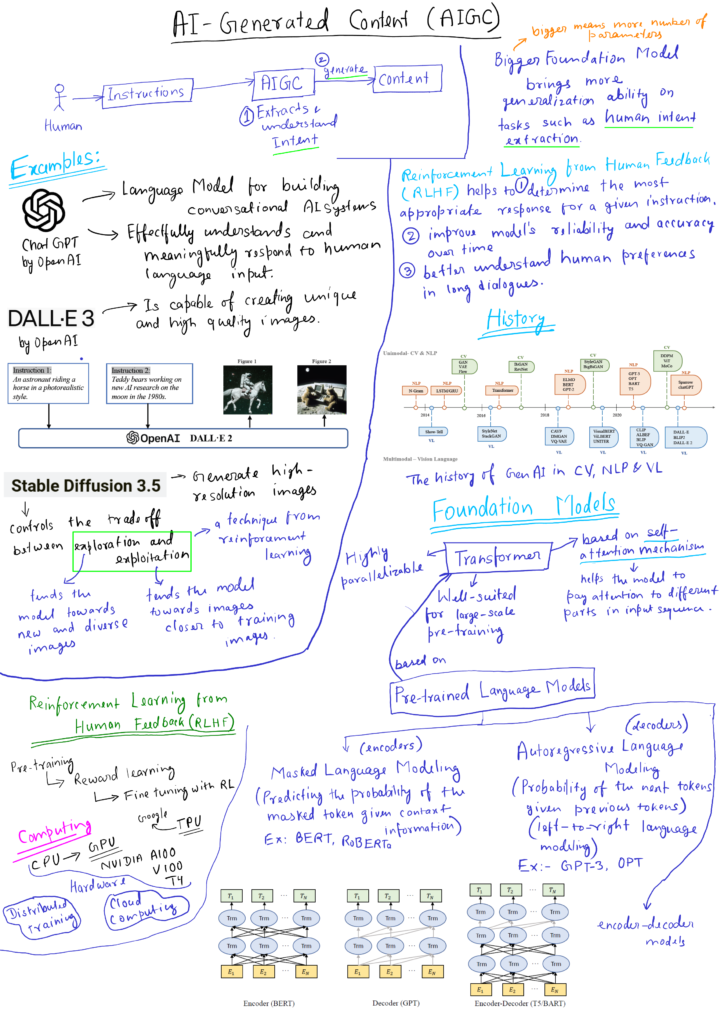 AI-Generated Content (AIGC)
Human
Instructions
AIGC
② generate
Content
① Extracts &
understand
Intent
bigger means more number of
parameters
Bigger Foundation Model
brings more
generalization ability on
tasks such as human intent
extraction.
Examples:
Chat GPT
by OpenAI
Language Model for building
conversational AI Systems
Effectfully understands and
meaningfully respond to human
language input.
DALL·E 3
by OpenAI
Is capable of creating unique
and high quality images.
Instruction 1:
An astronaut riding a
horse in a photorealistic
style.
Instruction 2:
Teddy bears working on
new AI research on the
moon in the 1980s.
Figure 1
Figure 2
OpenAI DALL·E 2
Stable Diffusion 3.5
Generate high-
resolution images
controls the tradeoff
between exploration and
exploitation
a technique from
reinforcement
learning
tends the
model towards
new and diverse
images
tends the model
towards images
closer to training
images.
Reinforcement Learning from Human Feedback
(RLHF) helps to ① determine the most
appropriate response for a given instruction.
② improve model's reliability and accuracy
over time
③ better understand human preferences
in long dialogues.
History
Unimodal- CV & NLP
CV
GAN
VAE
Flow
CV
ReGAN
RevNet
CV
StyleGAN
BigBiGAN
CV
DDPM
ViT
MoCo
NLP
N-Gram
NLP
LSTM/GRU
NLP
Transformer
NLP
ELMO
BERT
GPT-2
NLP
GPT-3
OPT
BART
T5
NLP
Sparrow
chatGPT
2014
2016
2018
2020
2022
Show-Tell
VL
StyleNet
StackGAN
VL
CAVP
DMGAN
VQ-VAE
VL
VisualBERT
ViLBERT
UNITER
VL
CLIP
ALBEF
BLIP
VQ-GAN
VL
DALL-E
BLIP2
DALL-E 2
VL
Multimodal – Vision Language
The history of GenAI in CV, NLP & VL
Foundation Models
Transformer
Highly
parallelizable
based on self-
attention mechanism
helps the model to
pay attention to different
parts in input sequence.
Well-suited
for large-scale
pre-training
based on
Pre-trained Language Models
Reinforcement Learning from
Human Feedback (RLHF)
Pre-training
Reward learning
Fine tuning with RL
Computing
Google
TPU
CPU
GPU
NVIDIA A100
V100
T4
Hardware
Distributed
Training
Cloud
Computing
(encoders)
Masked Language Modeling
(Predicting the probability of the
masked token given context
information)
Ex: BERT, RoBERTa
(decoders)
Autoregressive Language
Modeling
(Probability of the next tokens
given previous tokens)
(left-to-right language
modeling)
Ex:- GPT-3, OPT
encoder-decoder
models
T1 T2 ... TN
Trm Trm ... Trm
Trm Trm ... Trm
E1 E2 ... EN
Encoder (BERT)
T1 T2 ... TN
Trm Trm ... Trm
Trm Trm ... Trm
E1 E2 ... EN
Decoder (GPT)
T1 T2 ... TN
Trm Trm ... Trm
Trm Trm ... Trm
Trm Trm ... Trm
E1 E2 ... EN
Encoder-Decoder (T5/BART)